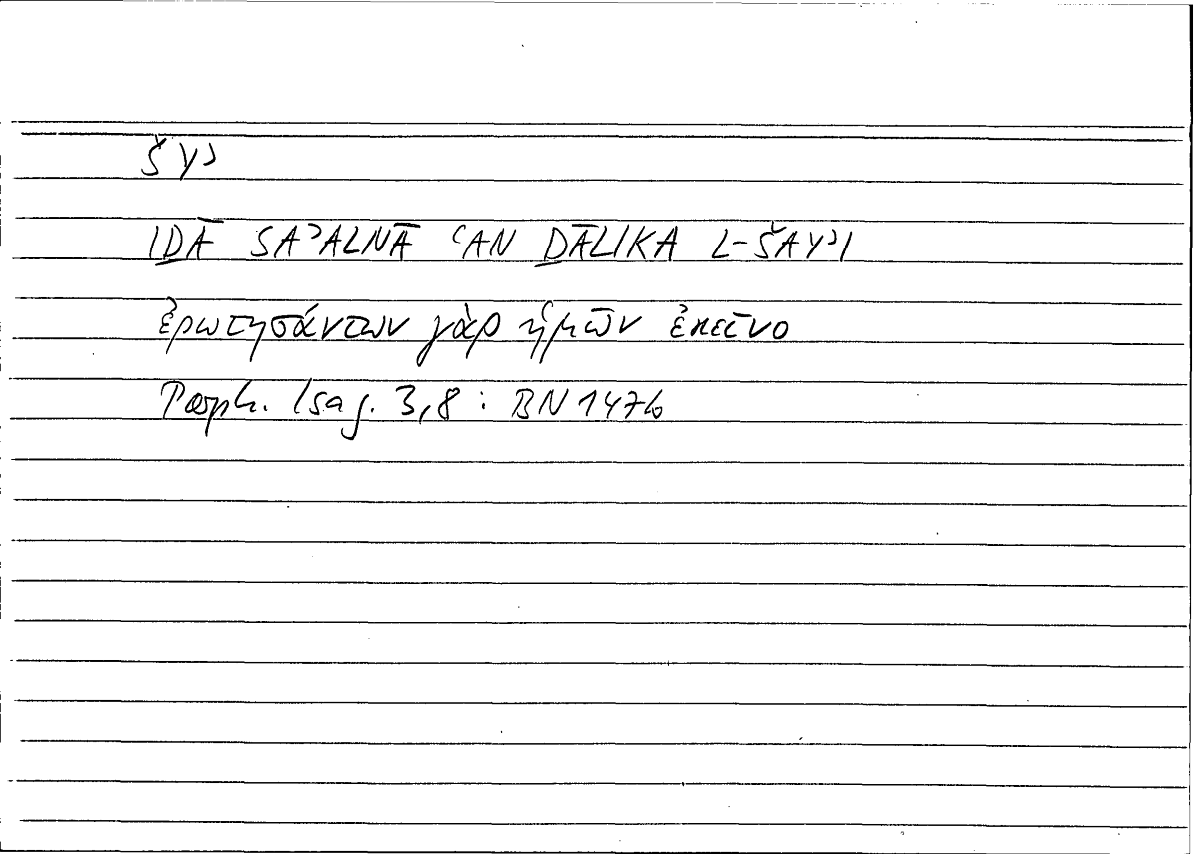 ŠYʾ
IḎĀ SAʾALNĀ ʿAN ḎĀLIKA L-ŠAYʾI
ἐρωτησάντων γὰρ ἡμῶν ἐκεῖνο
Porph. Isag. 3,8 : BN 147b